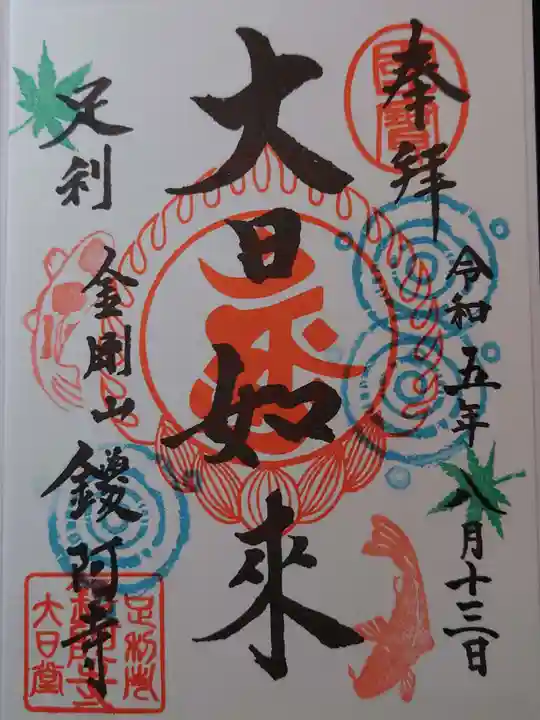 奉拜
國寶
令和五年八月十三日
大日如来
足利
金剛山鑁阿寺
足利市
大日堂